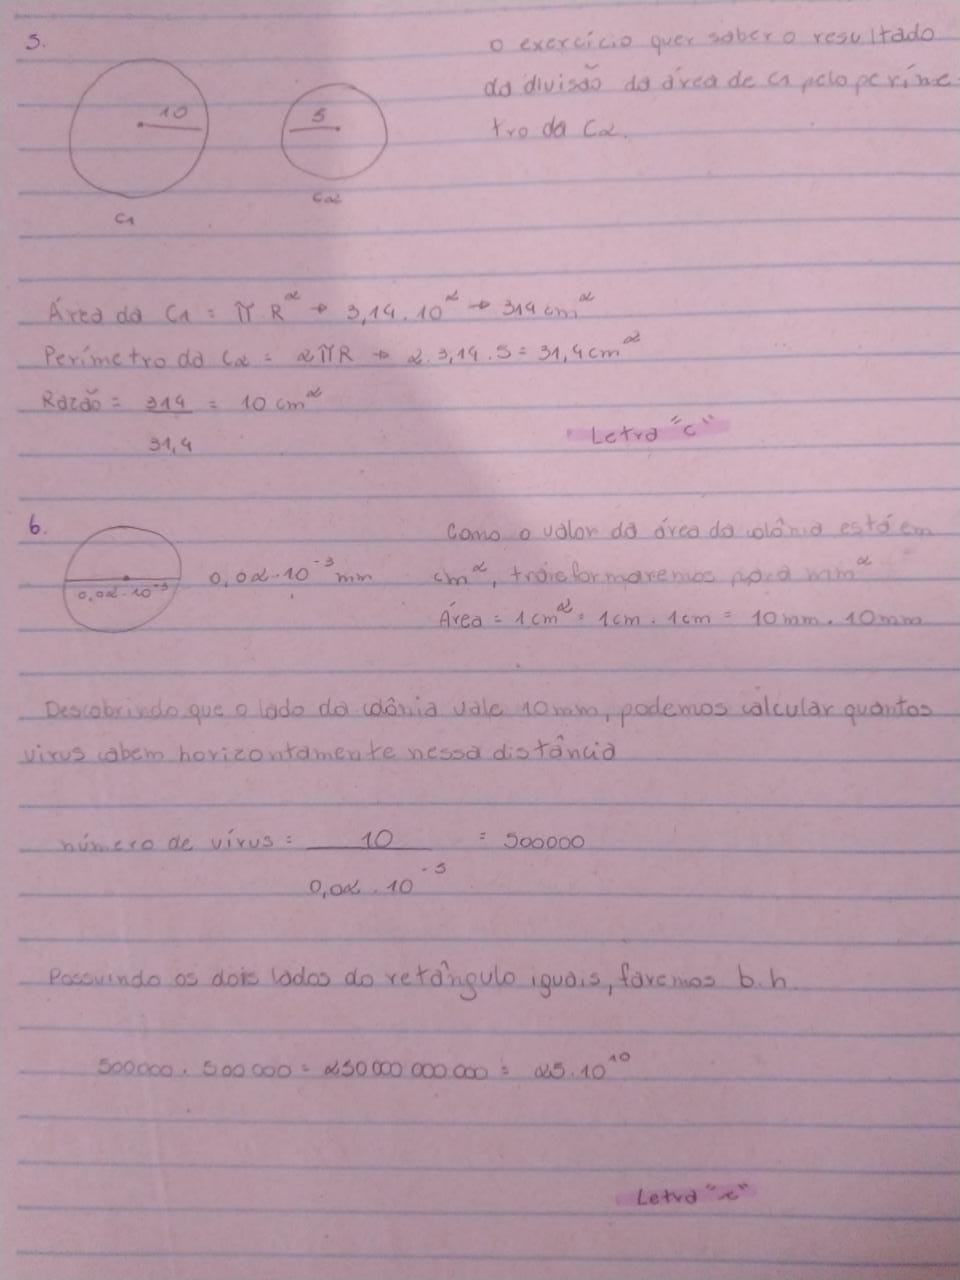 5.
O exercício quer saber o resultado
da divisão da área de C1 pelo períme-
tro da C2.
10
5
C1
C2
Área da C1 = π.R² → 3,14.10² → 314 cm²
Perímetro da C2 = 2πR → 2.3,14.5 = 31,4 cm²
Razão = 314 = 10 cm²
31,4
Letra "c"
6.
Como o valor da área da colônia está em
0,02.10⁻³
0,02.10⁻³ mm
cm², transformaremos para mm²
Área = 1cm² = 1cm . 1cm = 10mm . 10mm
Descobrindo que o lado da colônia vale 10mm, podemos calcular quantos
vírus cabem horizontamente nessa distância
número de vírus = 10 = 500000
0,02 . 10⁻³
Possuindo os dois lados do retângulo iguais, faremos b.h.
500000 . 500 000 = 250 000 000 000 = 25.10¹⁰
Letra